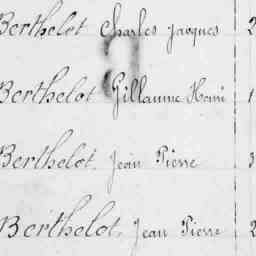 Berthelot Charles Jacques 2
Berthelot Gillaume Henri 1
Berthelot, Jean Pierre 3
Berthelot, Jean Pierre 2